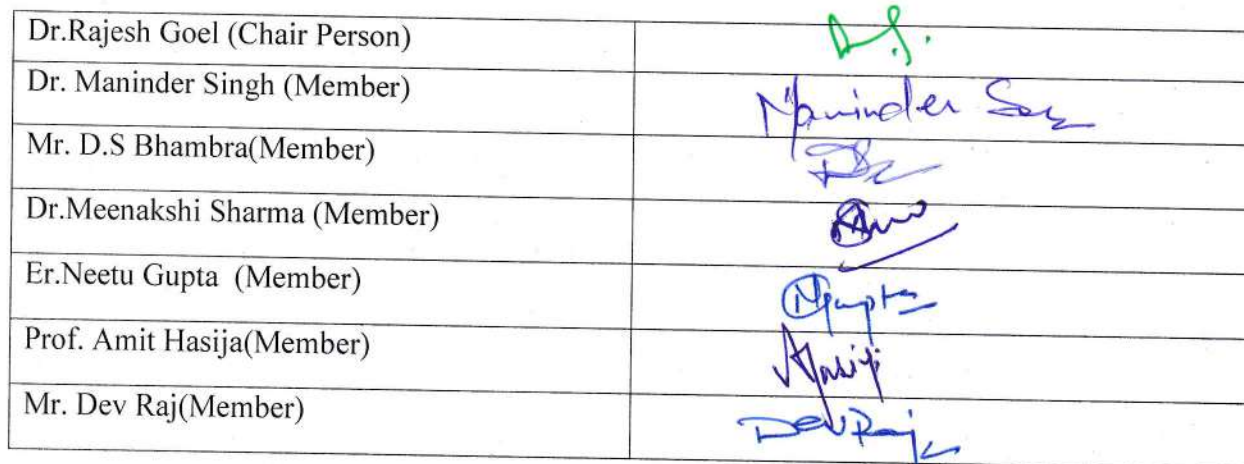 Dr.Rajesh Goel (Chair Person)
Dr. Maninder Singh (Member)
Maninder
Mr. D.S Bhambra(Member)
Dr.Meenakshi Sharma (Member)
Er.Neetu Gupta (Member)
NGupta
Prof. Amit Hasija(Member)
Mr. Dev Raj(Member)
Dev Raj